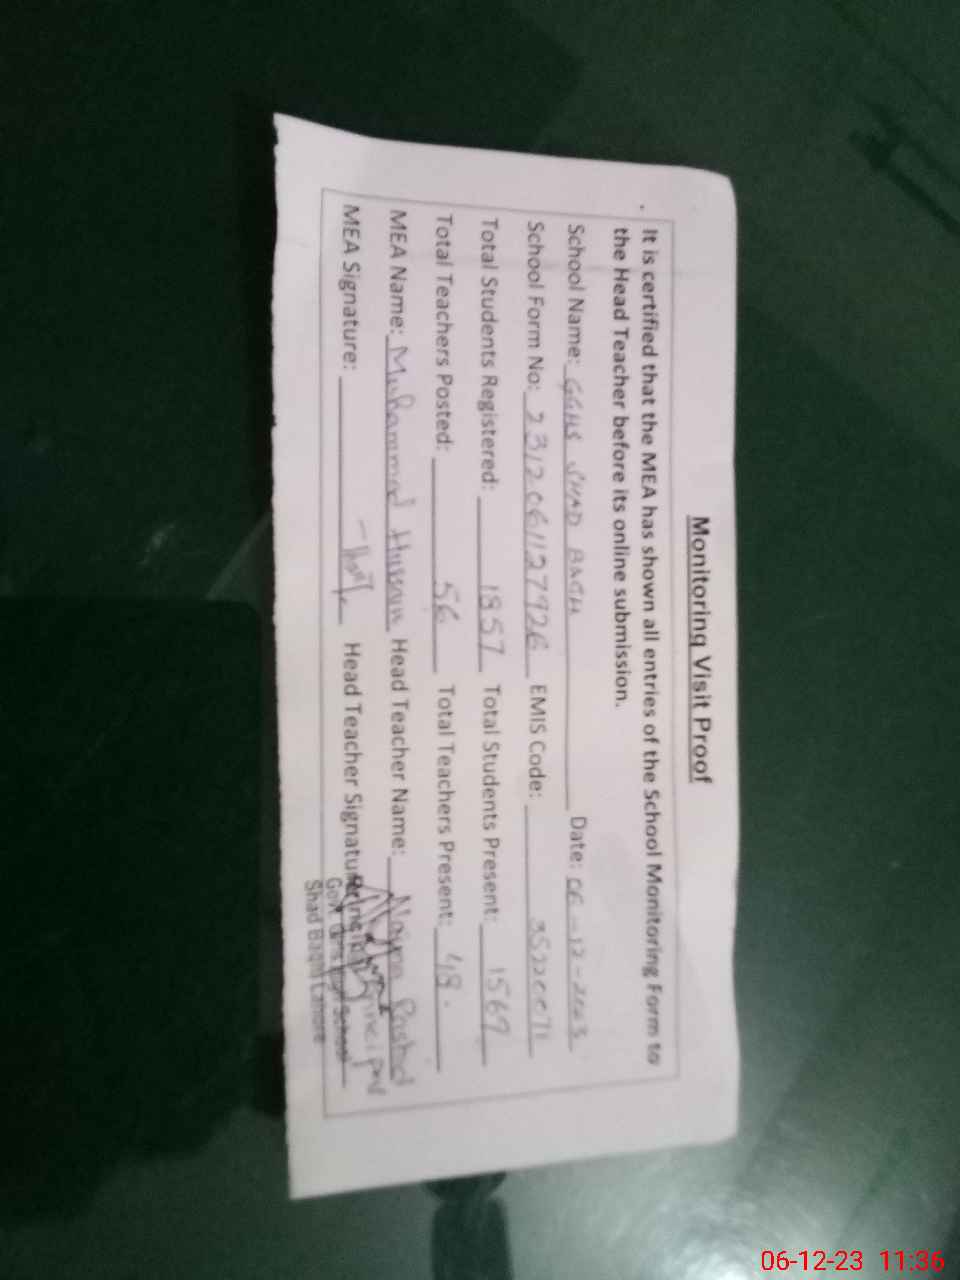 Monitoring Visit Proof
It is certified that the MEA has shown all entries of the School Monitoring Form to
the Head Teacher before its online submission.
School Name: GGHS SHAD BAGH Date: 06-12-2023
School Form No: 2312061127926 EMIS Code: 35220071
Total Students Registered: 1857 Total Students Present: 1569
Total Teachers Posted: 56 Total Teachers Present: 48.
MEA Name: Muhammad Hussain Head Teacher Name: Rashid
MEA Signature: Head Teacher Signature: Principal
Principal
Govt. Girls High School
Shad Bagh Lahore
06-12-23 11:36